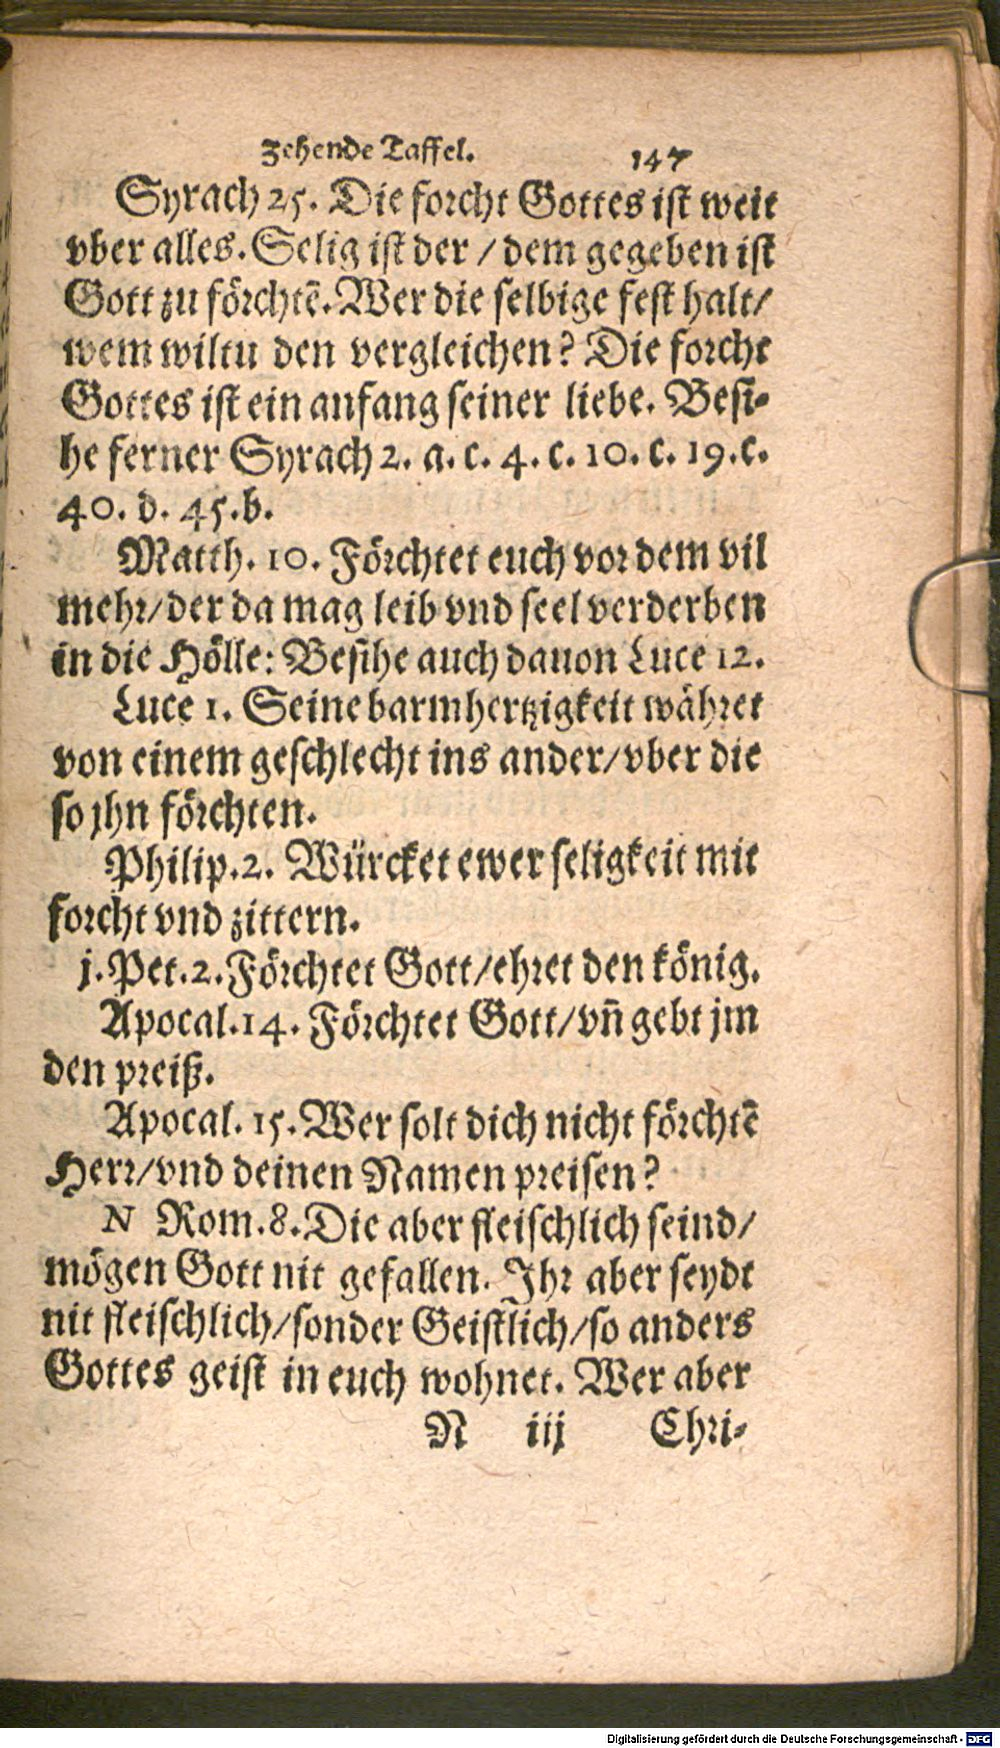 Zehende Taffel. 147
Syrach 25. Die forcht Gottes ist weit
vber alles. Selig ist der / dem gegeben ist
Gott zu förchtē. Wer die selbige fest halt/
wem wiltu den vergleichen? Die forcht
Gottes ist ein anfang seiner liebe. Besi-
he ferner Syrach 2. a. c. 4. c. 10. c. 19. c.
40. d. 45. b.
Matth. 10. Förchtet euch vor dem vil
mehr/der da mag leib vnd seel verderben
in die Hölle: Besihe auch dauon Luce 12.
Luce 1. Seine barmhertzigkeit währet
von einem geschlecht ins ander/vber die
so jhn förchten.
Philip. 2. Würcket ewer seligkeit mit
forcht vnd zittern.
j. Pet. 2. Förchtet Gott/ehret den könig.
Apocal. 14. Förchtet Gott/vñ gebt jm
den preiß.
Apocal. 15. Wer solt dich nicht förchtē
Herr/vnd deinen Namen preisen?
N Rom. 8. Die aber fleischlich seind/
mögen Gott nit gefallen. Jhr aber seydt
nit fleischlich/sonder Geistlich/so anders
Gottes geist in euch wohnet. Wer aber
N iij Chri-
Digitalisierung gefördert durch die Deutsche Forschungsgemeinschaft - DFG